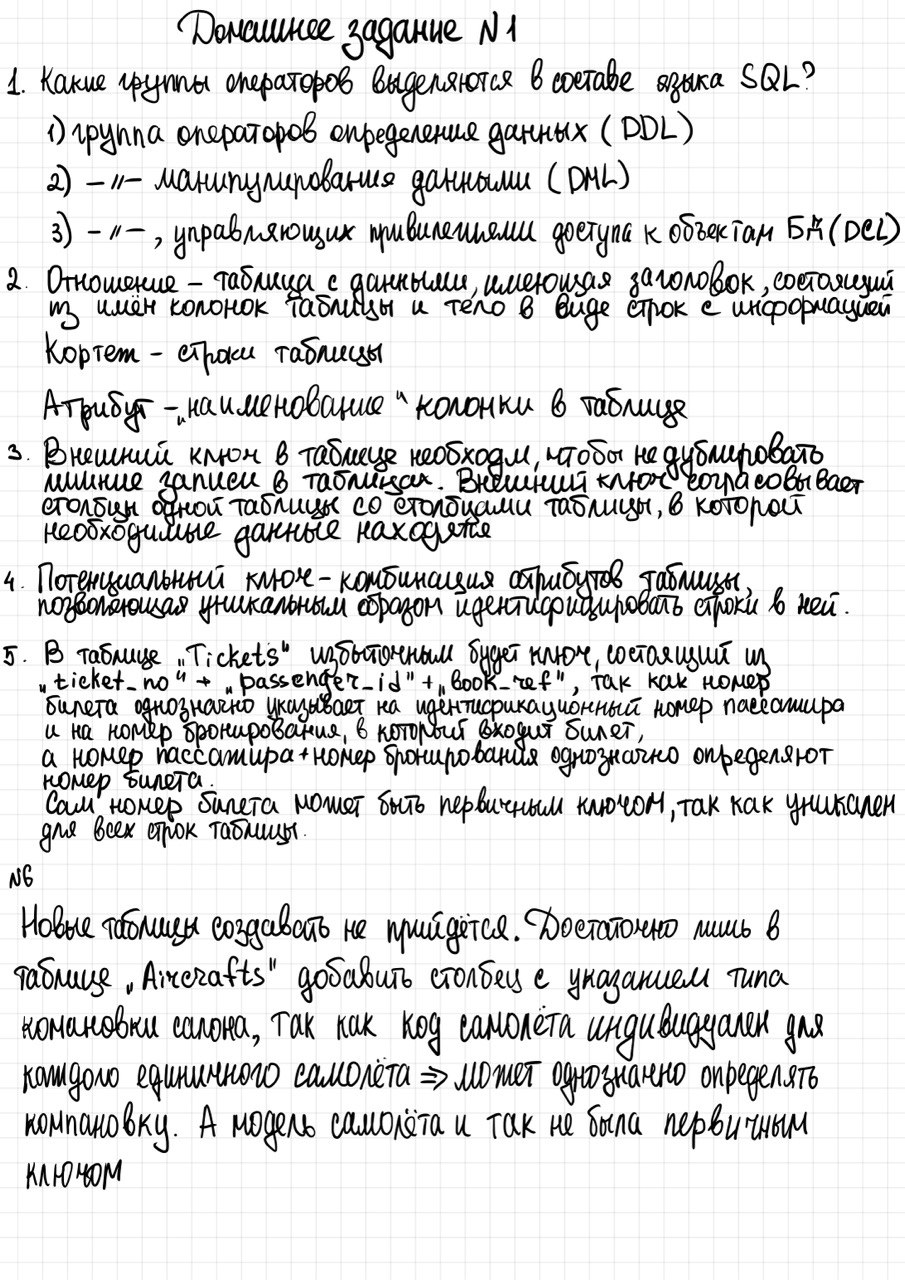 Домашнее задание N1
1. Какие группы операторов выделяются в составе языка SQL?
1) группа операторов определения данных (DDL)
2) –"– манипулирования данными (DML)
3) –"–, управляющих привилегиями доступа к объектам БД (DCL)
2. Отношение – таблица с данными, имеющая заголовок, состоящий
из имён колонок таблицы и тело в виде строк с информацией
Кортеж – строки таблицы
Атрибут – „наименование" колонки в таблице
3. Внешний ключ в таблице необходим, чтобы не дублировать
лишние записи в таблицах. Внешний ключ согласовывает
столбцы одной таблицы со столбцами таблицы, в которой
необходимые данные находятся
4. Потенциальный ключ – комбинация атрибутов таблицы,
позволяющая уникальным образом идентифицировать строки в ней.
5. В таблице „Tickets" избыточным будет ключ, состоящий из
„ticket_no" + „passenger_id" + „book_ref", так как номер
билета однозначно указывает на идентификационный номер пассажира
и на номер бронирования, в который входит билет,
а номер пассажира + номер бронирования однозначно определяют
номер билета.
Сам номер билета может быть первичным ключом, так как уникален
для всех строк таблицы.
N6
Новые таблицы создавать не прийдётся. Достаточно лишь в
таблице „Aircrafts" добавить столбец с указанием типа
компановки салона, так как код самолёта индивидуален для
каждого единичного самолёта ⇒ может однозначно определять
компановку. А модель самолёта и так не была первичным
ключом